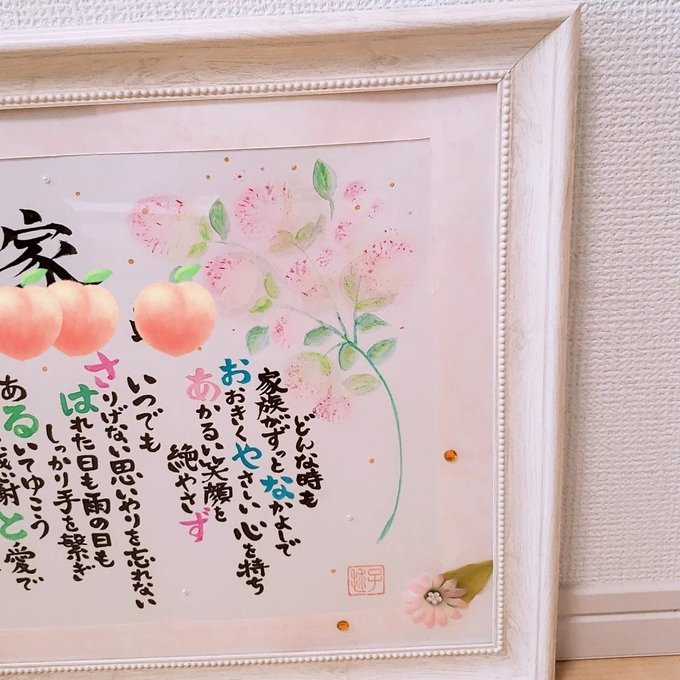 家
どんな時も
家族がずっとなかよしで
おおきくやさしい心を持ち
あかるい笑顔を
絶やさず
いつでも
さりげない思いやりを忘れない
はれた日も雨の日も
しっかり手を繋ぎ
あるいてゆこう
感謝と愛で